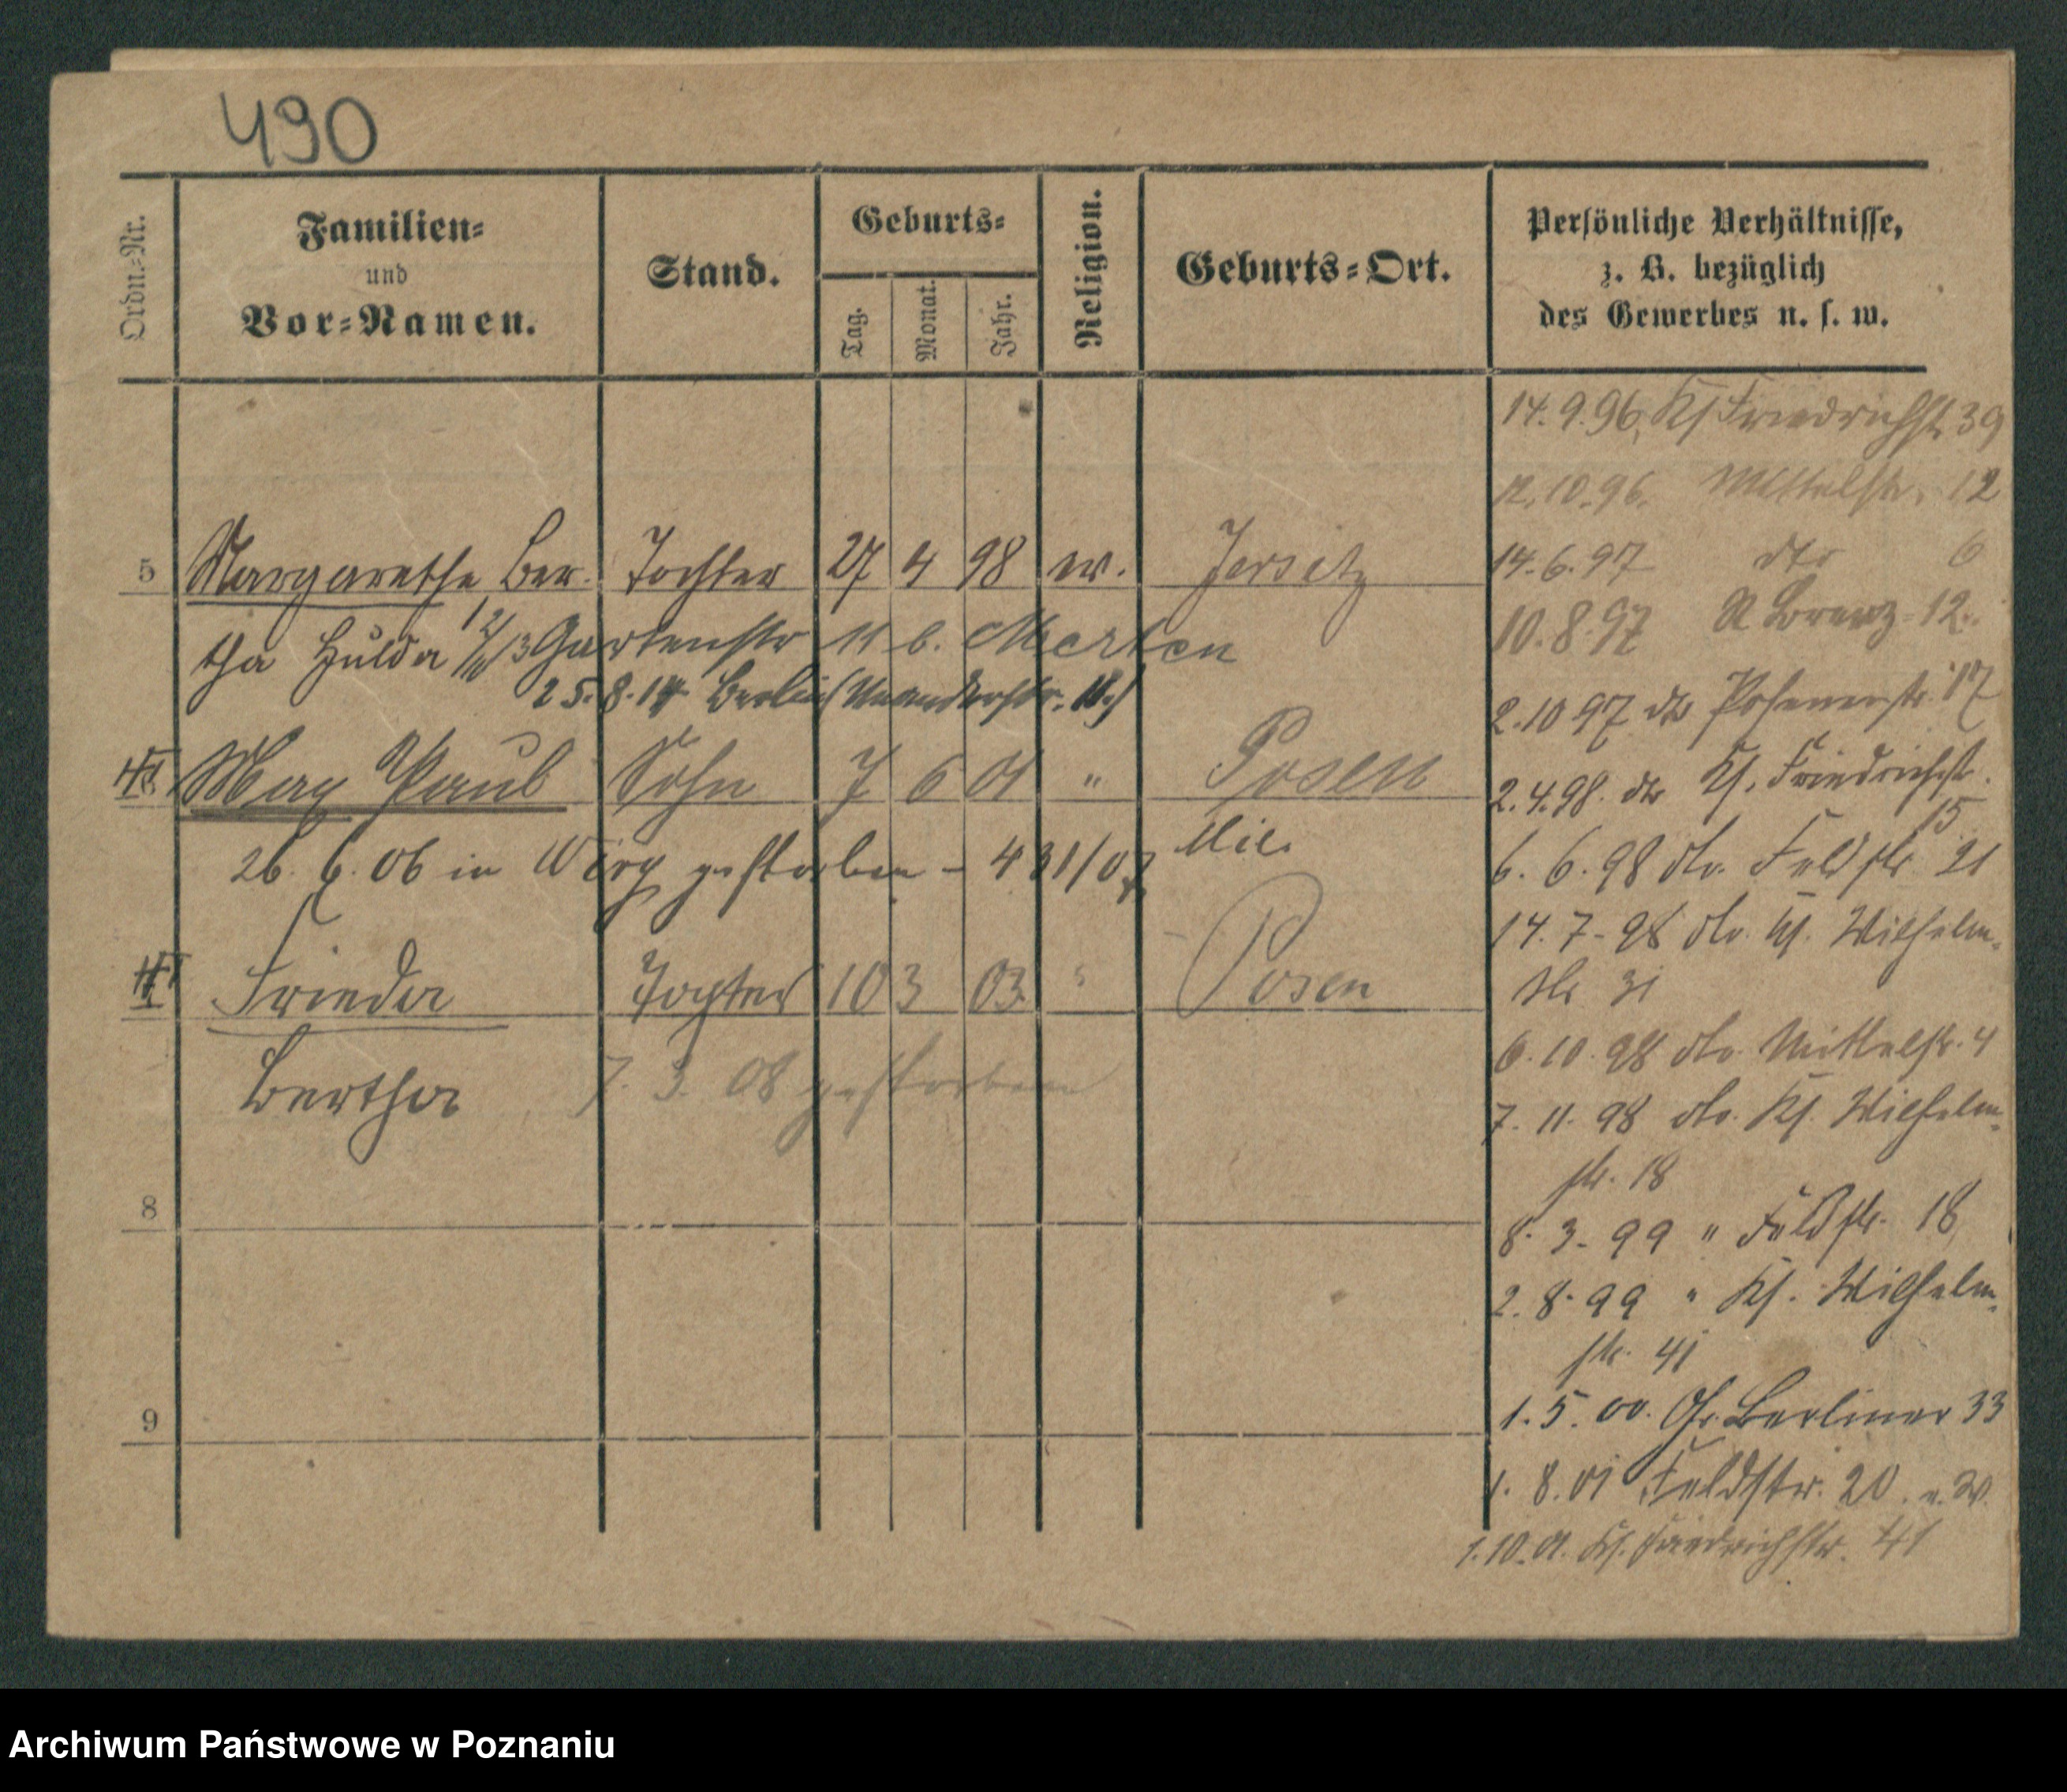 490
Ordn.-Nr.
Familien-
und
Vor-Namen.
Stand.
Geburts-
Tag.
Monat.
Jahr.
Religion.
Geburts-Ort.
Persönliche Verhältnisse,
z. B. bezüglich
des Gewerbes u. s. w.
14.9.96. Kl Friedrichstr 39
12.10.96. Mittelstr. 12
5 Margarethe Ber- Tochter 27 4 98 ev. Jersitz
14.6.97 dto 6
tha Hulda 12/11 13 Gartenstr 11 b. Merten
10.8.97 St Lorenz 12.
25.8.14 Berlin
2.10 97 dto Posenerstr. 17
Max Paul Sohn 7 6 01 " Posen
2.4.98. dto Kl. Friedrichstr.
15
26. 6. 06 in gestorben - 431/07
6. 6. 98 dto. Feldstr 21
14. 7. 98 dto. Kl. Wilhelm-
Frieda Tochter 10 3 03 " Posen
str 31
6. 10. 98 dto. Mittelstr. 4
Bertha 7. 3. 08 gestorben
7. 11. 98 dto. Kl. Wilhelm-
str. 18
8
8. 3. 99 " Feldstr. 18
2. 8. 99 " Kl. Wilhelm-
str. 41
9
1. 5. 00. Gr. Berliner 33
1. 8. 01 Feldstr. 20.
1.10.01. Kl. Friedrichstr. 41
Archiwum Państwowe w Poznaniu